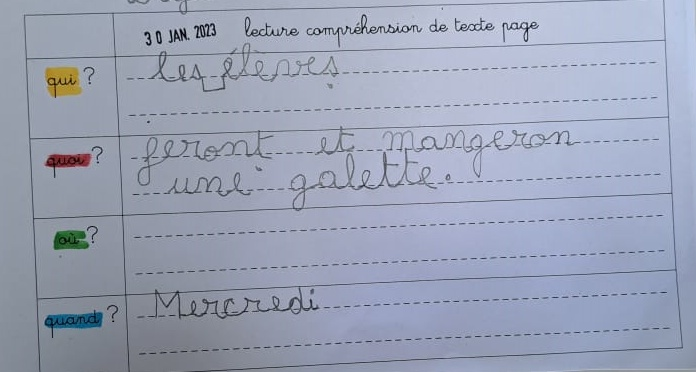 30 JAN. 2023 lecture compréhension de texte page
qui ? les élèves
quoi ? feront et mangeron
une galette.
où ?
quand ? Mercredi